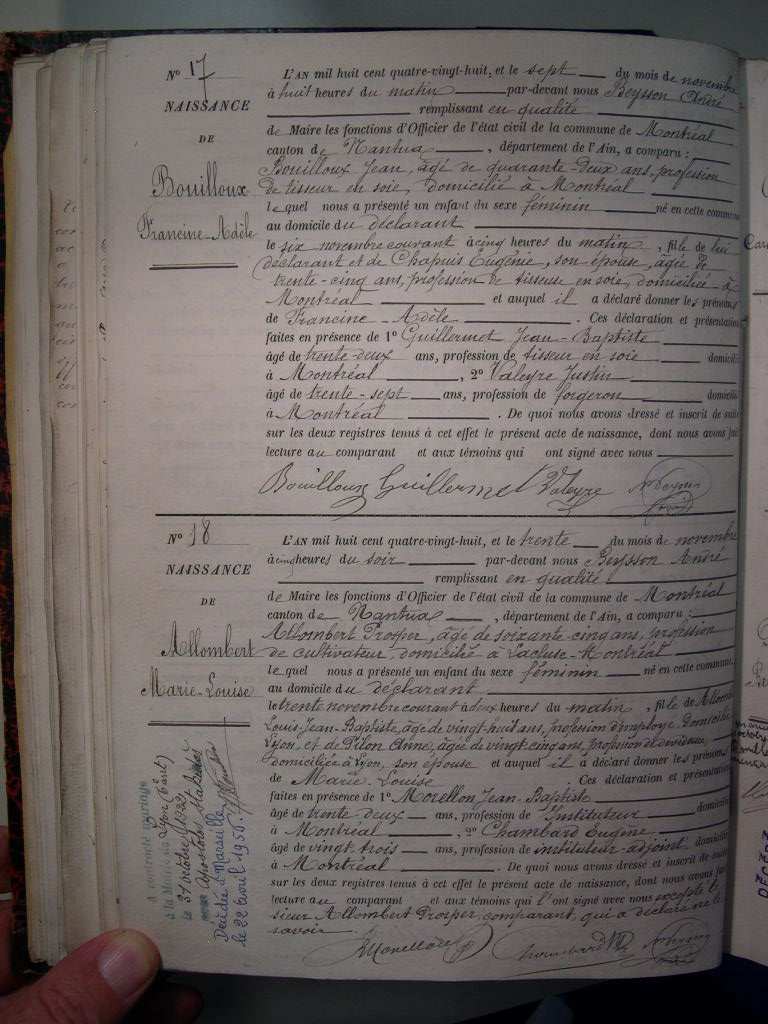 N° 17
NAISSANCE
DE
Bouilloux
Francine-Adèle
L'AN mil huit cent quatre-vingt-huit, et le sept du mois de novembre
à huit heures du matin par-devant nous Beysson André
remplissant en qualité
de Maire les fonctions d'Officier de l'état civil de la commune de Montréal
canton de Nantua, département de l'Ain, a comparu :
Bouilloux Jean, âgé de quarante-deux ans, profession
de tisseur en soie, domicilié à Montréal
lequel nous a présenté un enfant du sexe féminin né en cette commune
au domicile du déclarant
le six novembre courant à cinq heures du matin, fille de lui
déclarant et de Chapuis Eugénie, son épouse, âgée de
trente-cinq ans, profession de tisseuse en soie, domiciliée à
Montréal et auquel il a déclaré donner les prénoms
de Francine-Adèle. Ces déclaration et présentation
faites en présence de 1° Guillermet Jean-Baptiste
âgé de trente-deux ans, profession de tisseur en soie domicilié
à Montréal, 2° Valeyre Justin
âgé de trente-sept ans, profession de forgeron domicilié
à Montréal. De quoi nous avons dressé et inscrit de suite
sur les deux registres tenus à cet effet le présent acte de naissance, dont nous avons fait
lecture au comparant et aux témoins qui ont signé avec nous
Bouilloux Guillermet Valeyre Beysson
N° 18
NAISSANCE
DE
Allombert
Marie-Louise
L'AN mil huit cent quatre-vingt-huit, et le trente du mois de novembre
à cinq heures du soir par-devant nous Beysson André
remplissant en qualité
de Maire les fonctions d'Officier de l'état civil de la commune de Montréal
canton de Nantua, département de l'Ain, a comparu :
Allombert Prosper, âgé de soixante-cinq ans, profession
de cultivateur, domicilié à Lacluse-Montréal
lequel nous a présenté un enfant du sexe féminin né en cette commune
au domicile du déclarant
le trente novembre courant à deux heures du matin, fille de Allombert
Louis-Jean-Baptiste, âgé de vingt-huit ans, profession d'employé, domicilié
Lyon, et de Pilon Anne, âgée de vingt-cinq ans, profession
domiciliée à Lyon, son épouse et auquel il a déclaré donner les prénoms
de Marie Louise. Ces déclaration et présentation
faites en présence de 1° Morellon Jean-Baptiste
âgé de trente deux ans, profession de Instituteur domicilié
à Montréal, 2° Chambard Eugène
âgé de vingt trois ans, profession de instituteur-adjoint domicilié
à Montréal. De quoi nous avons dressé et inscrit de suite
sur les deux registres tenus à cet effet le présent acte de naissance, dont nous avons fait
lecture au comparant et aux témoins qui l'ont signé avec nous excepté le
sieur Allombert Prosper, comparant, qui a déclaré ne le
savoir.
JMorellon Chambard Beysson
A contracté mariage
à la Mairie de Lyon
le 31 octobre 1922
avec Apostolo
Décédée à Marseille
le 22 avril 1956.